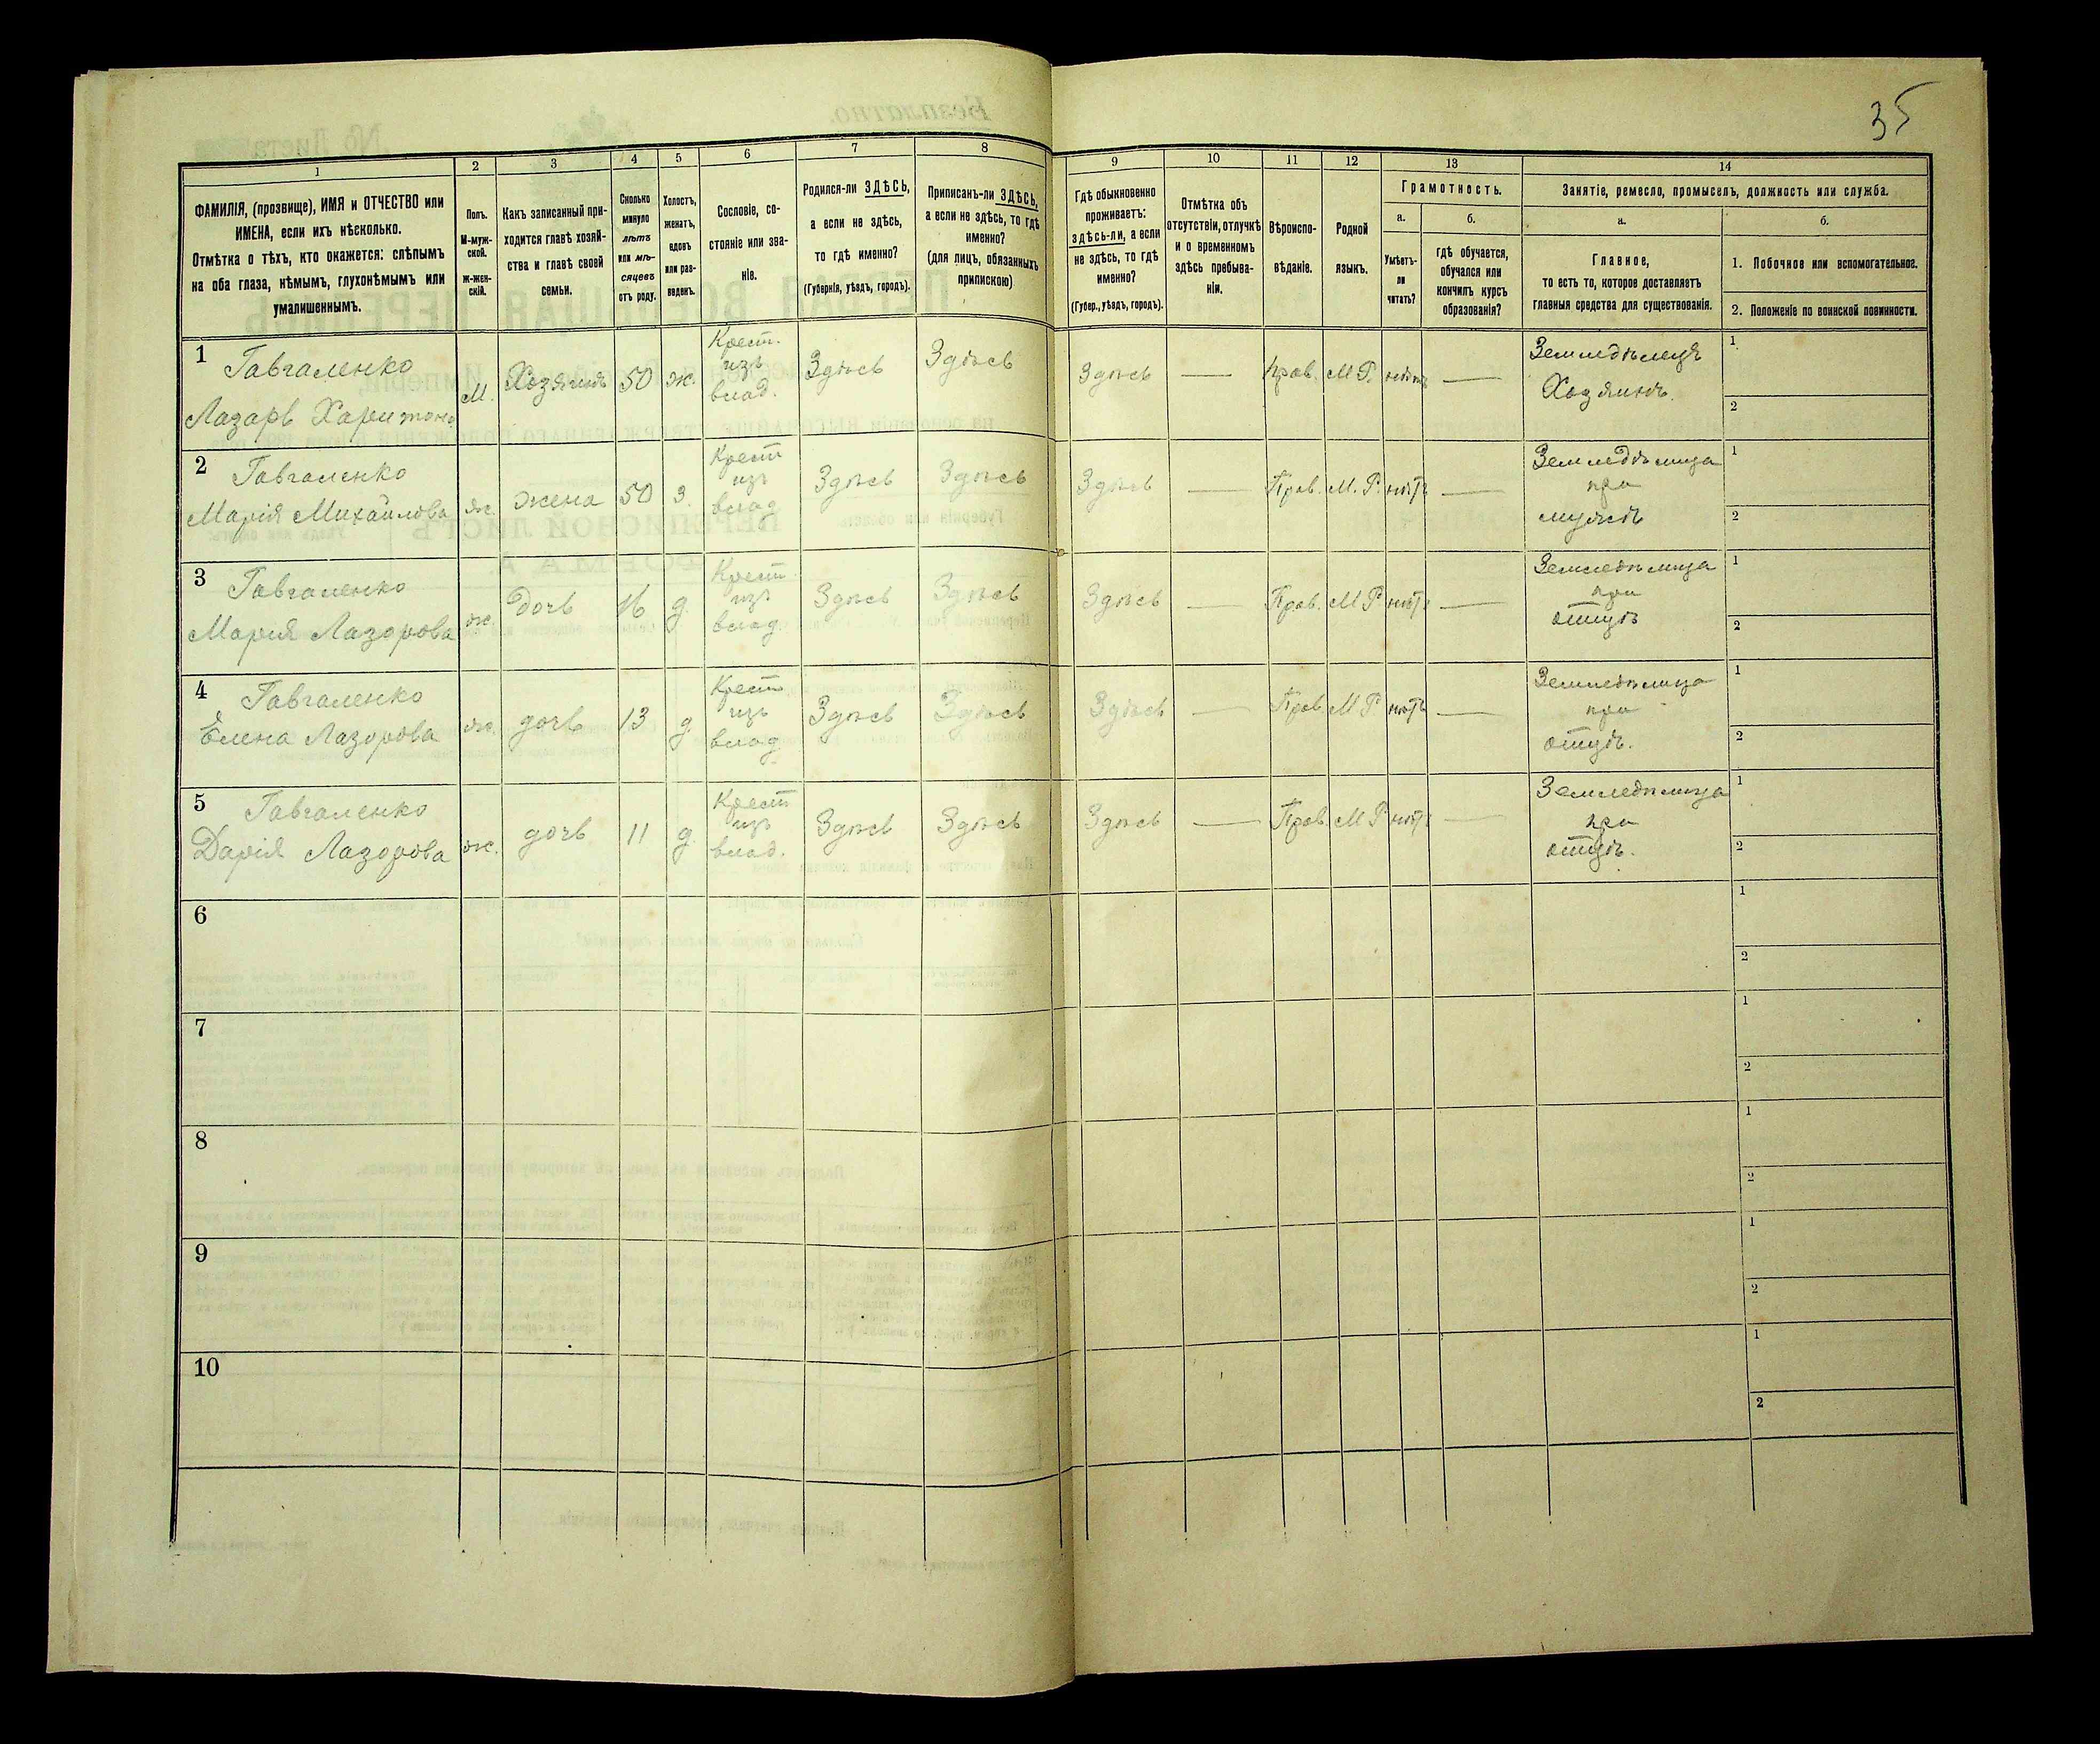 35
1
2
3
4
5
6
7
8
9
10
11
12
13
14
ФАМИЛІЯ, (прозвище), ИМЯ и ОТЧЕСТВО или
ИМЕНА, если ихъ нѣсколько.
Отмѣтка о тѣхъ, кто окажется: слѣпымъ
на оба глаза, нѣмымъ, глухонѣмымъ или
умалишеннымъ.
Полъ.
М-муж-
ской.
Ж-жен-
скій.
Какъ записанный при-
ходится главѣ хозяй-
ства и главѣ своей
семьи.
Сколько
минуло
лѣтъ
или мѣ-
сяцевъ
отъ роду.
Холостъ,
женатъ,
вдовъ
или раз-
веденъ.
Сословіе, со-
стояніе или зва-
ніе.
Родился-ли ЗДѢСЬ,
а если не здѣсь,
то гдѣ именно?
(Губернія, уѣздъ, городъ).
Приписанъ-ли ЗДѢСЬ,
а если не здѣсь, то гдѣ
именно?
(для лицъ, обязанныхъ
припискою)
Гдѣ обыкновенно
проживаетъ:
здѣсь-ли, а если
не здѣсь, то гдѣ
именно?
(Губер., уѣздъ, городъ).
Отмѣтка объ
отсутствіи, отлучкѣ
и о временномъ
здѣсь пребыва-
ніи.
Вѣроиспо-
вѣданіе.
Родной
языкъ.
Грамотность.
а.
б.
Умѣетъ-
ли
читать?
гдѣ обучается,
обучался или
кончилъ курсъ
образованія?
Занятіе, ремесло, промыселъ, должность или служба.
а.
б.
Главное,
то есть то, которое доставляетъ
главныя средства для существованія.
1. Побочное или вспомогательное.
2. Положеніе по воинской повинности.
1 Гавгаленко
Лазарь Харитоно
М. Хозяинъ 50 ж.
Крест.
изъ
влад.
Здѣсь Здѣсь Здѣсь — Прав. М Р. нѣтъ —
Земледѣлецъ
Хозяинъ.
1
2
2 Гавгаленко
Марія Михайлова
ж. жена 50 з.
Крест
изъ
влад
Здѣсь Здѣсь Здѣсь — Прав. М. Р. нѣтъ —
Земледѣлица
при
мужѣ
1
2
3 Гавгаленко
Марія Лазорова
ж. Дочь 16 д.
Крест
изъ
влад.
Здѣсь Здѣсь Здѣсь — Прав. М Р нѣтъ —
Земледѣлица
при
отцѣ
1
2
4 Гавгаленко
Елена Лазорова
ж. дочь 13 д.
Крест
изъ
влад
Здѣсь Здѣсь Здѣсь — Прав М Р нѣтъ —
Земледѣлица
при
отцѣ.
1
2
5 Гавгаленко
Дарія Лазорова
ж. дочь 11 д.
Крест
изъ
влад.
Здѣсь Здѣсь Здѣсь — Прав М Р нѣтъ —
Земледѣлица
при
отцѣ.
1
2
6
1
2
7
1
2
8
1
2
9
1
2
10
1
2